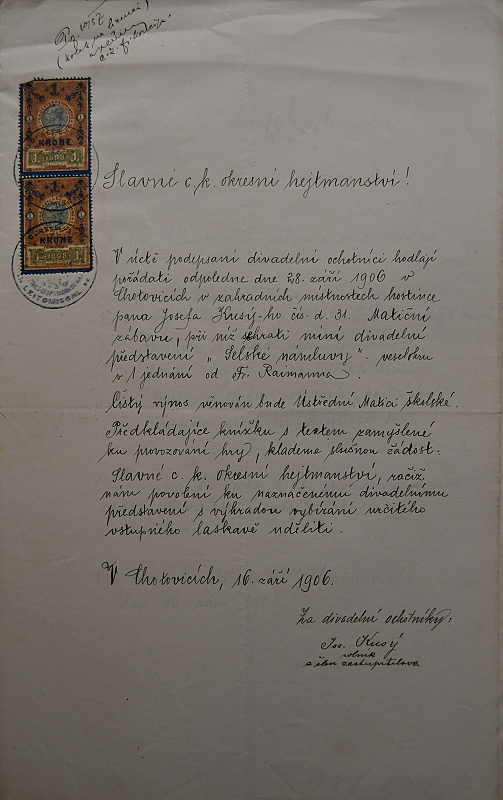 1
KRONE
1 1898 1
1
KRONE
1 1898 1
Slavné c. k. okresní hejtmanství!
V úctě podepsaní divadelní ochotníci hodlají
pořádati odpoledne dne 28. září 1906 v
Chotovicích v zahradních místnostech hostince
pana Josefa Kusý-ho čís. d. 31. Matiční
zábavu, při níž sehrati míní divadelní
představení „Selské námluvy" veselohru
v 1 jednání od Fr. Raimanna.
Čistý výnos věnován bude Ústřední Matici školské.
Předkládajíce knížku s textem zamýšlené
ku provozování hry, klademe slušnou žádost:
Slavné c. k. okresní hejtmanství, račiž
nám povolení ku naznačenému divadelnímu
představení s výhradou vybírání určitého
vstupného laskavě uděliti.
V Chotovicích, 16. září 1906.
Za divadelní ochotníky:
Jos. Kusý
rolník
a člen zastupitelstva